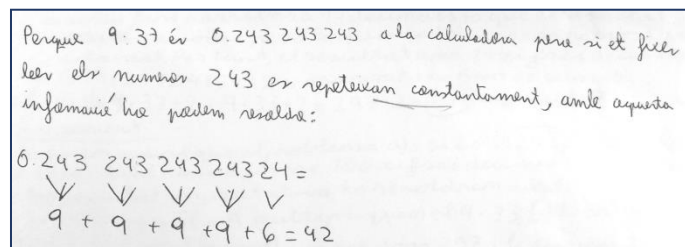 Perque 9:37 és 0.243 243 243 a la calculadora pero si et fixes
be els numeros 243 es repeteixan constantament, amb aquesta
infomació ho podem resoldre:
0.243 243 243 243 24=
9 + 9 + 9 + 9 + 6 = 42